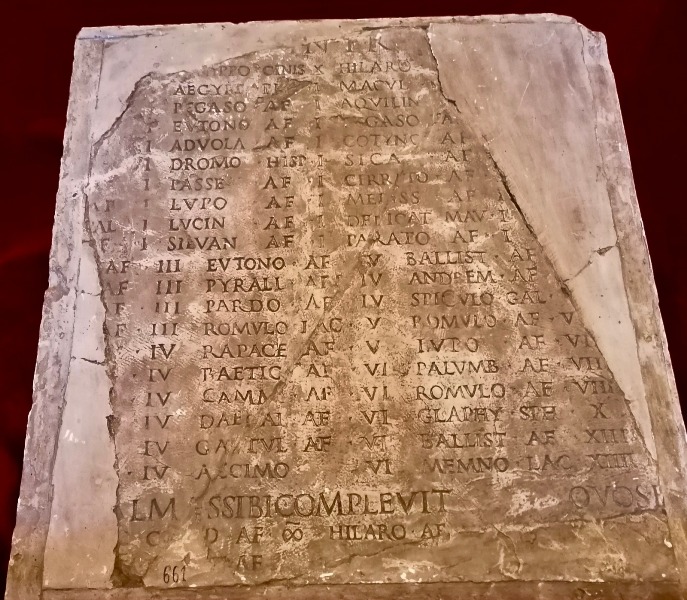 IV
CINIS X HILARO
AEGYPT I MACVL
PEGASO AF I AQVILIN
I EVTONO AF I GASO
I ADVOLA AF I COTYNO AF
I DROMO HISP I SICA AF
I PASSE AF I CIRRATO AF
AF I LVPO AF I MELISS AF
AL I LVCIN AF I DELICAT MAV I
F I SILVAN AF I PARATO AF I
AF III EVTONO AF IV BALLIST AF
F III PYRALL AF IV ANDREM AF
F III PARDO AF IV SPICVLO GAL
F III ROMVLO LAC V ROMVLO AF V
IV RAPACE AF V LVPO AF VI
IV BAETIC AF VI PALVMB AF VII
IV CAMM AF VI ROMVLO AF VIII
IV AF VI GLAPHY SPH X
IV AF VI BALLIST AF XIII
IV VI MEMNO LAC XIIII
LM SSIBICOMPLEVIT QVOS
C D AF ∞ HILARO AF
AF
661